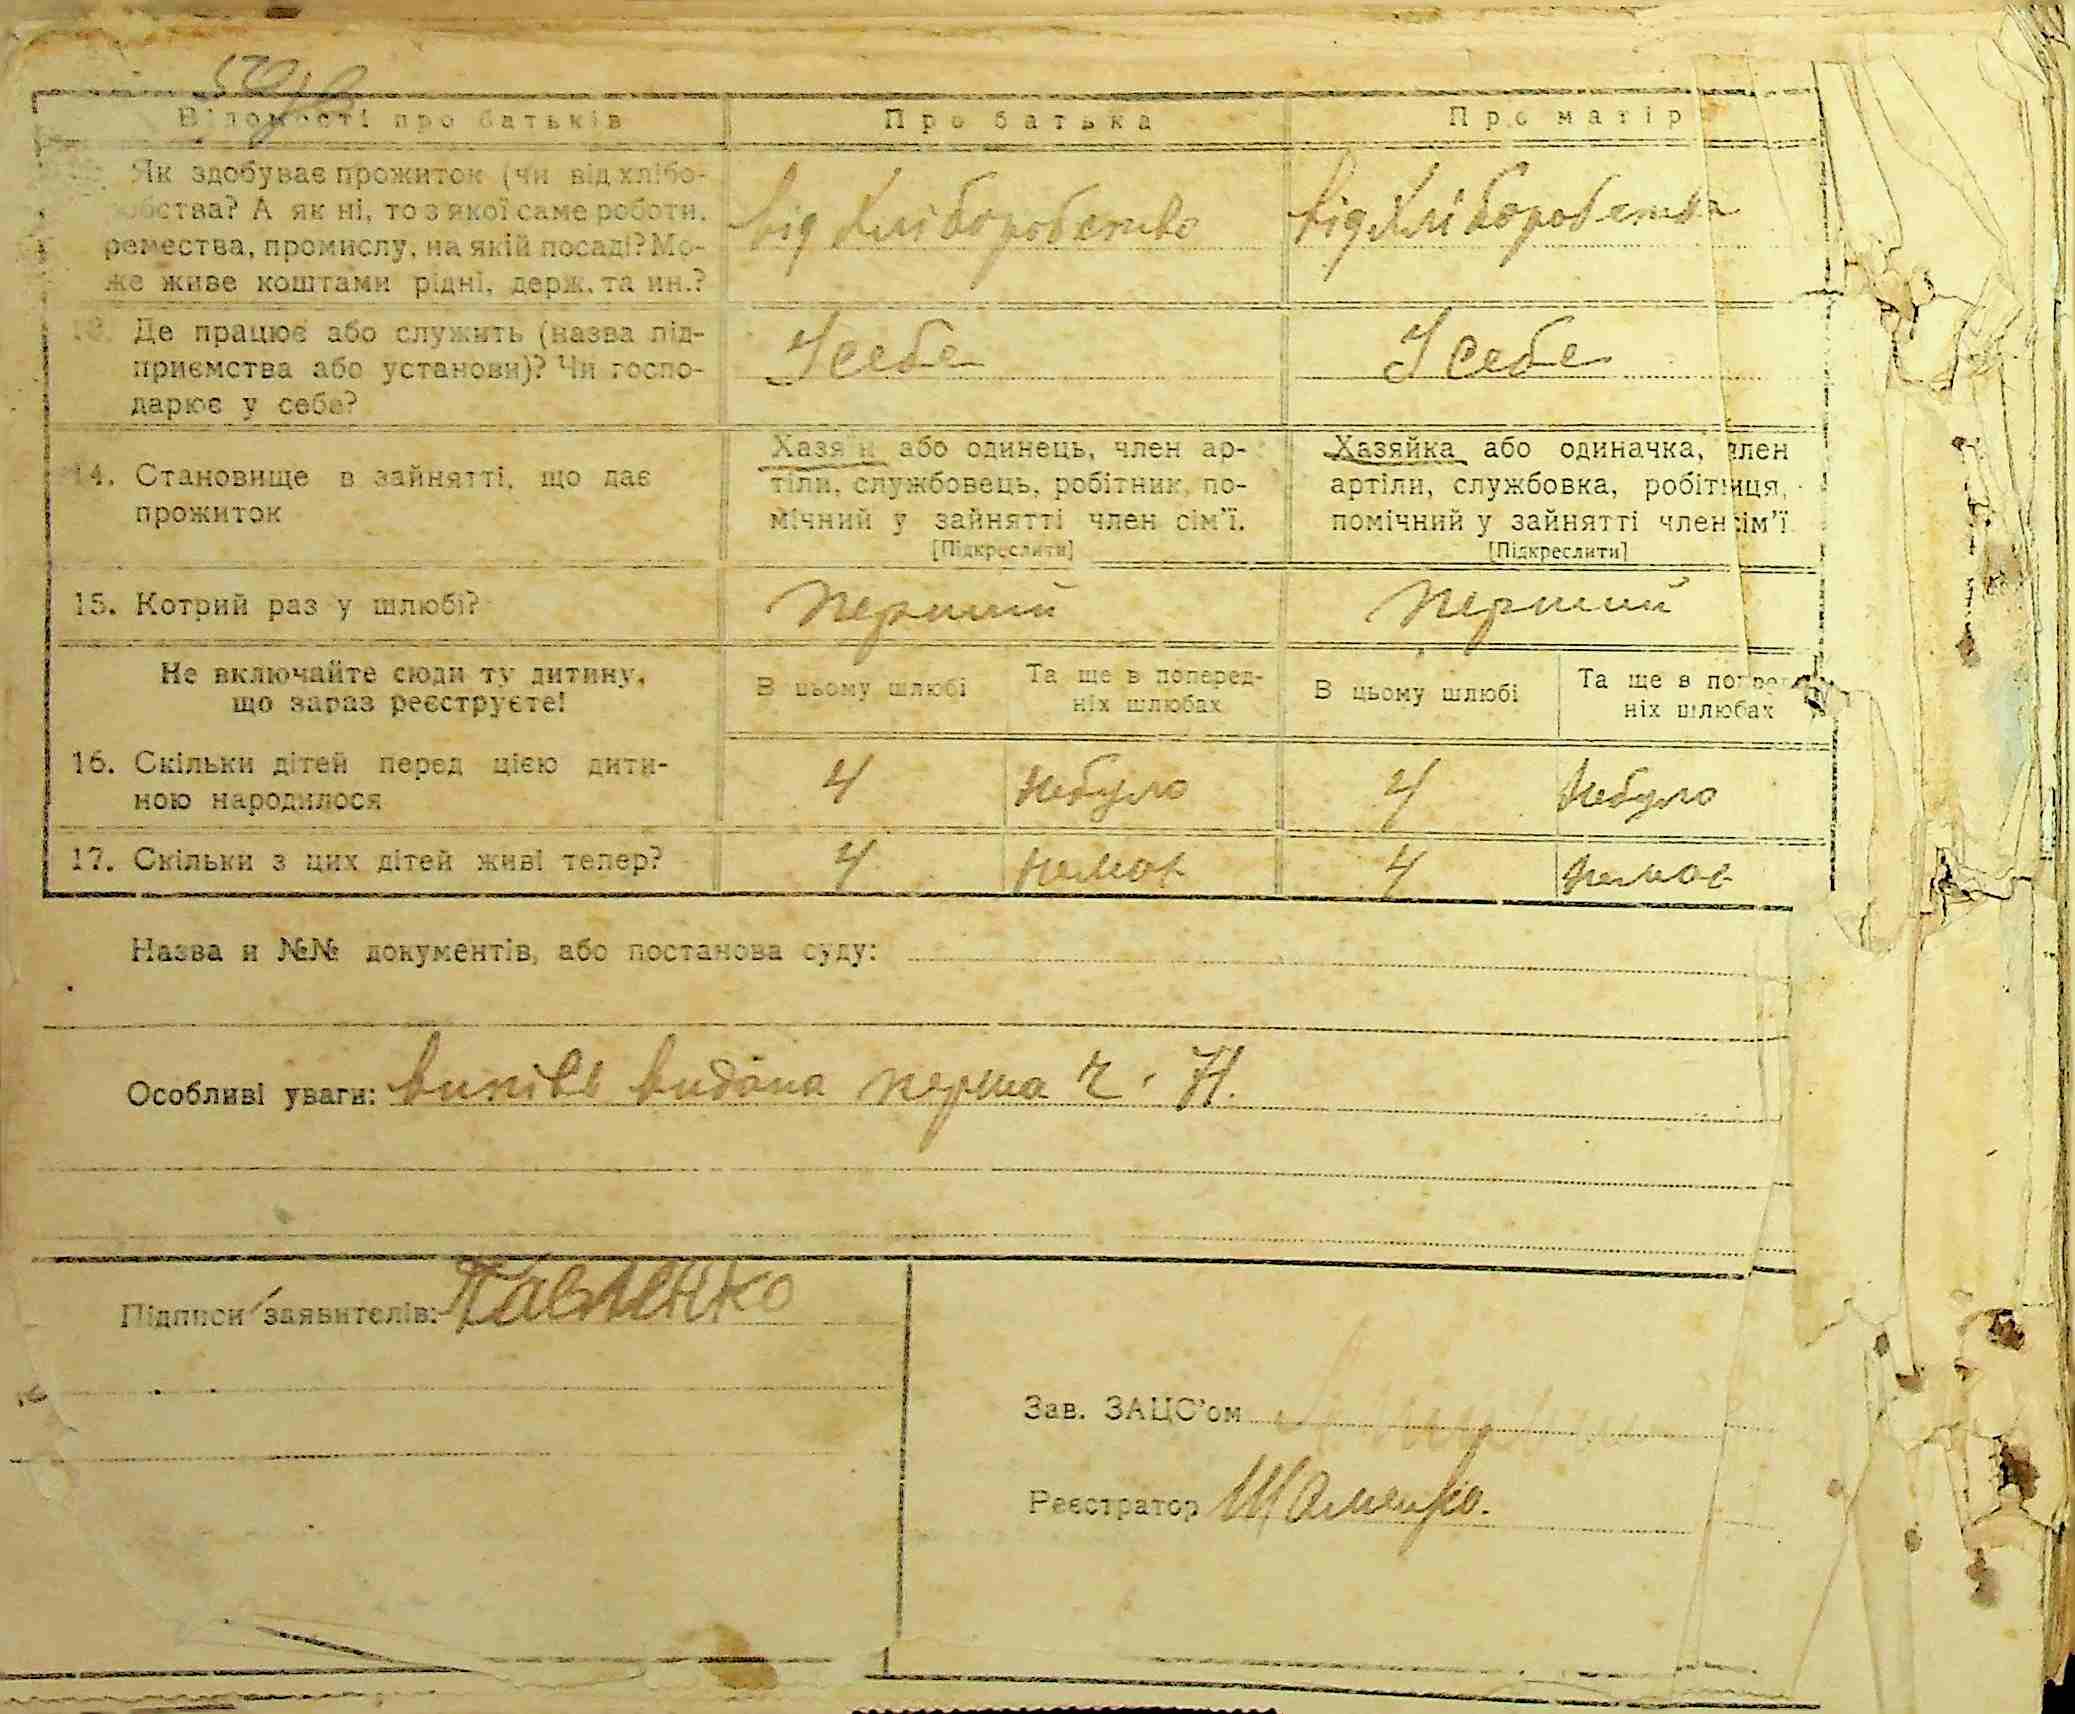 Відомості про батьків Про батька Про матір
Як здобуває прожиток (чи від хлібо-
робства? А як ні, то з якої саме роботи,
ремества, промислу, на якій посаді? Мо-
же живе коштами рідні, держ. та ин.?
від хліборобства від хліборобства
13. Де працює або служить (назва під-
приємства або установи)? Чи госпо-
дарює у себе?
У себе У себе
14. Становище в зайнятті, що дає
прожиток
Хазяїн або одинець, член ар-
тіли, службовець, робітник, по-
мічний у зайнятті член сім'ї.
[Підкреслити]
Хазяйка або одиначка, член
артіли, службовка, робітниця,
помічний у зайнятті член сім'ї
[Підкреслити]
15. Котрий раз у шлюбі? перший перший
Не включайте сюди ту дитину,
що зараз реєструєте!
В цьому шлюбі
Та ще в поперед-
ніх шлюбах
В цьому шлюбі
Та ще в попере
ніх шлюбах
16. Скільки дітей перед цією дити-
ною народилося
4 небуло 4 небуло
17. Скільки з цих дітей живі тепер? 4 немає 4 немає
Назва и №№ документів, або постанова суду:
Особливі уваги: випівь видана перша
Підписи заявителів: Павленко
Зав. ЗАЦС'ом
Реєстратор